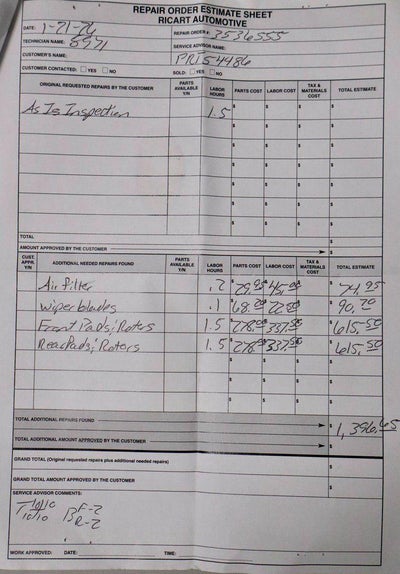 REPAIR ORDER ESTIMATE SHEET
RICART AUTOMOTIVE
DATE: 1-21-26 REPAIR ORDER #: 3536555
TECHNICIAN NAME: 8971 SERVICE ADVISOR NAME:
CUSTOMER'S NAME: PRT54486
CUSTOMER CONTACTED: YES NO SOLD: YES NO
ORIGINAL REQUESTED REPAIRS BY THE CUSTOMER PARTS AVAILABLE Y/N LABOR HOURS PARTS COST LABOR COST TAX & MATERIALS COST TOTAL ESTIMATE
As Is Inspection 1.5 $ $ $ $
$ $ $ $
$ $ $ $
$ $ $ $
$ $ $ $
$ $ $ $
$ $ $ $
TOTAL
AMOUNT APPROVED BY THE CUSTOMER $
CUST. APPR. Y/N ADDITIONAL NEEDED REPAIRS FOUND PARTS AVAILABLE Y/N LABOR HOURS PARTS COST LABOR COST TAX & MATERIALS COST TOTAL ESTIMATE
Air filter .2 $29.95 $45.00 $ $74.95
wiper blades .1 $68.20 $22.50 $ $90.70
Front Pads; Rotors 1.5 $278.00 $337.50 $ $615.50
Rear Pads; Rotors 1.5 $278.00 $337.50 $ $615.50
$ $ $ $
$ $ $ $
TOTAL ADDITIONAL REPAIRS FOUND $ 1,396.65
TOTAL ADDITIONAL AMOUNT APPROVED BY THE CUSTOMER $
GRAND TOTAL (Original requested repairs plus additional needed repairs) $
GRAND TOTAL AMOUNT APPROVED BY THE CUSTOMER $
SERVICE ADVISOR COMMENTS:
T 10/10 B F-2
10/10 R-2
WORK APPROVED: DATE: TIME: